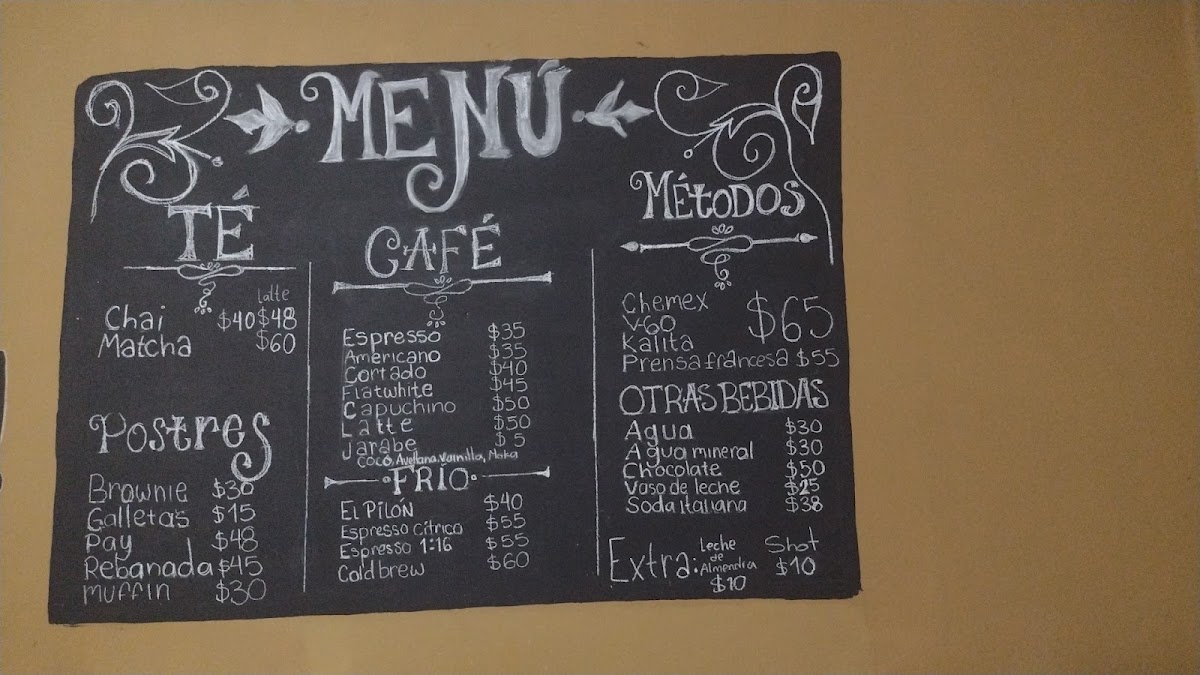 MENÚ
TÉ
latte
Chai $40 $48
Matcha $60
Postres
Brownie $30
Galletas $15
Pay $48
Rebanada $45
muffin $30
CAFÉ
Espresso $35
Americano $35
Cortado $40
Flatwhite $45
Capuchino $50
Latte $50
Jarabe $5
coco, Avellana, Vainilla, Moka
FRÍO
El PILÓN $40
Espresso Cítrico $55
Espresso 1:16 $55
Cold brew $60
MÉTODOS
Chemex
V-60 $65
Kalita
Prensa francesa $55
OTRAS BEBIDAS
Agua $30
Agua mineral $30
Chocolate $50
Vaso de leche $25
Soda italiana $38
Extra: Leche de Almendra $10
Shot $10